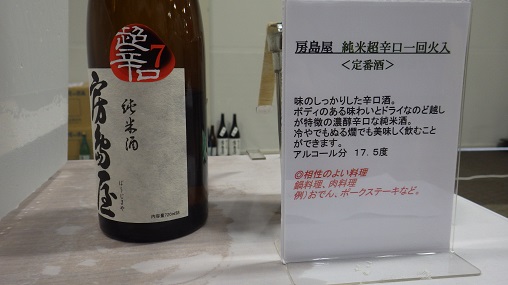 超辛口
7
純米酒
房島屋
ぼうじまや
内容量720ml詰
房島屋 純米超辛口一回火入
＜定番酒＞
味のしっかりした辛口酒。
ボディのある味わいとドライなのど越し
が特徴の濃醇辛口な純米酒。
冷やでもぬる燗でも美味しく飲むこと
ができます。
アルコール分 １７．５度
◎相性のよい料理
鍋料理、肉料理
例）おでん、ポークステーキなど。